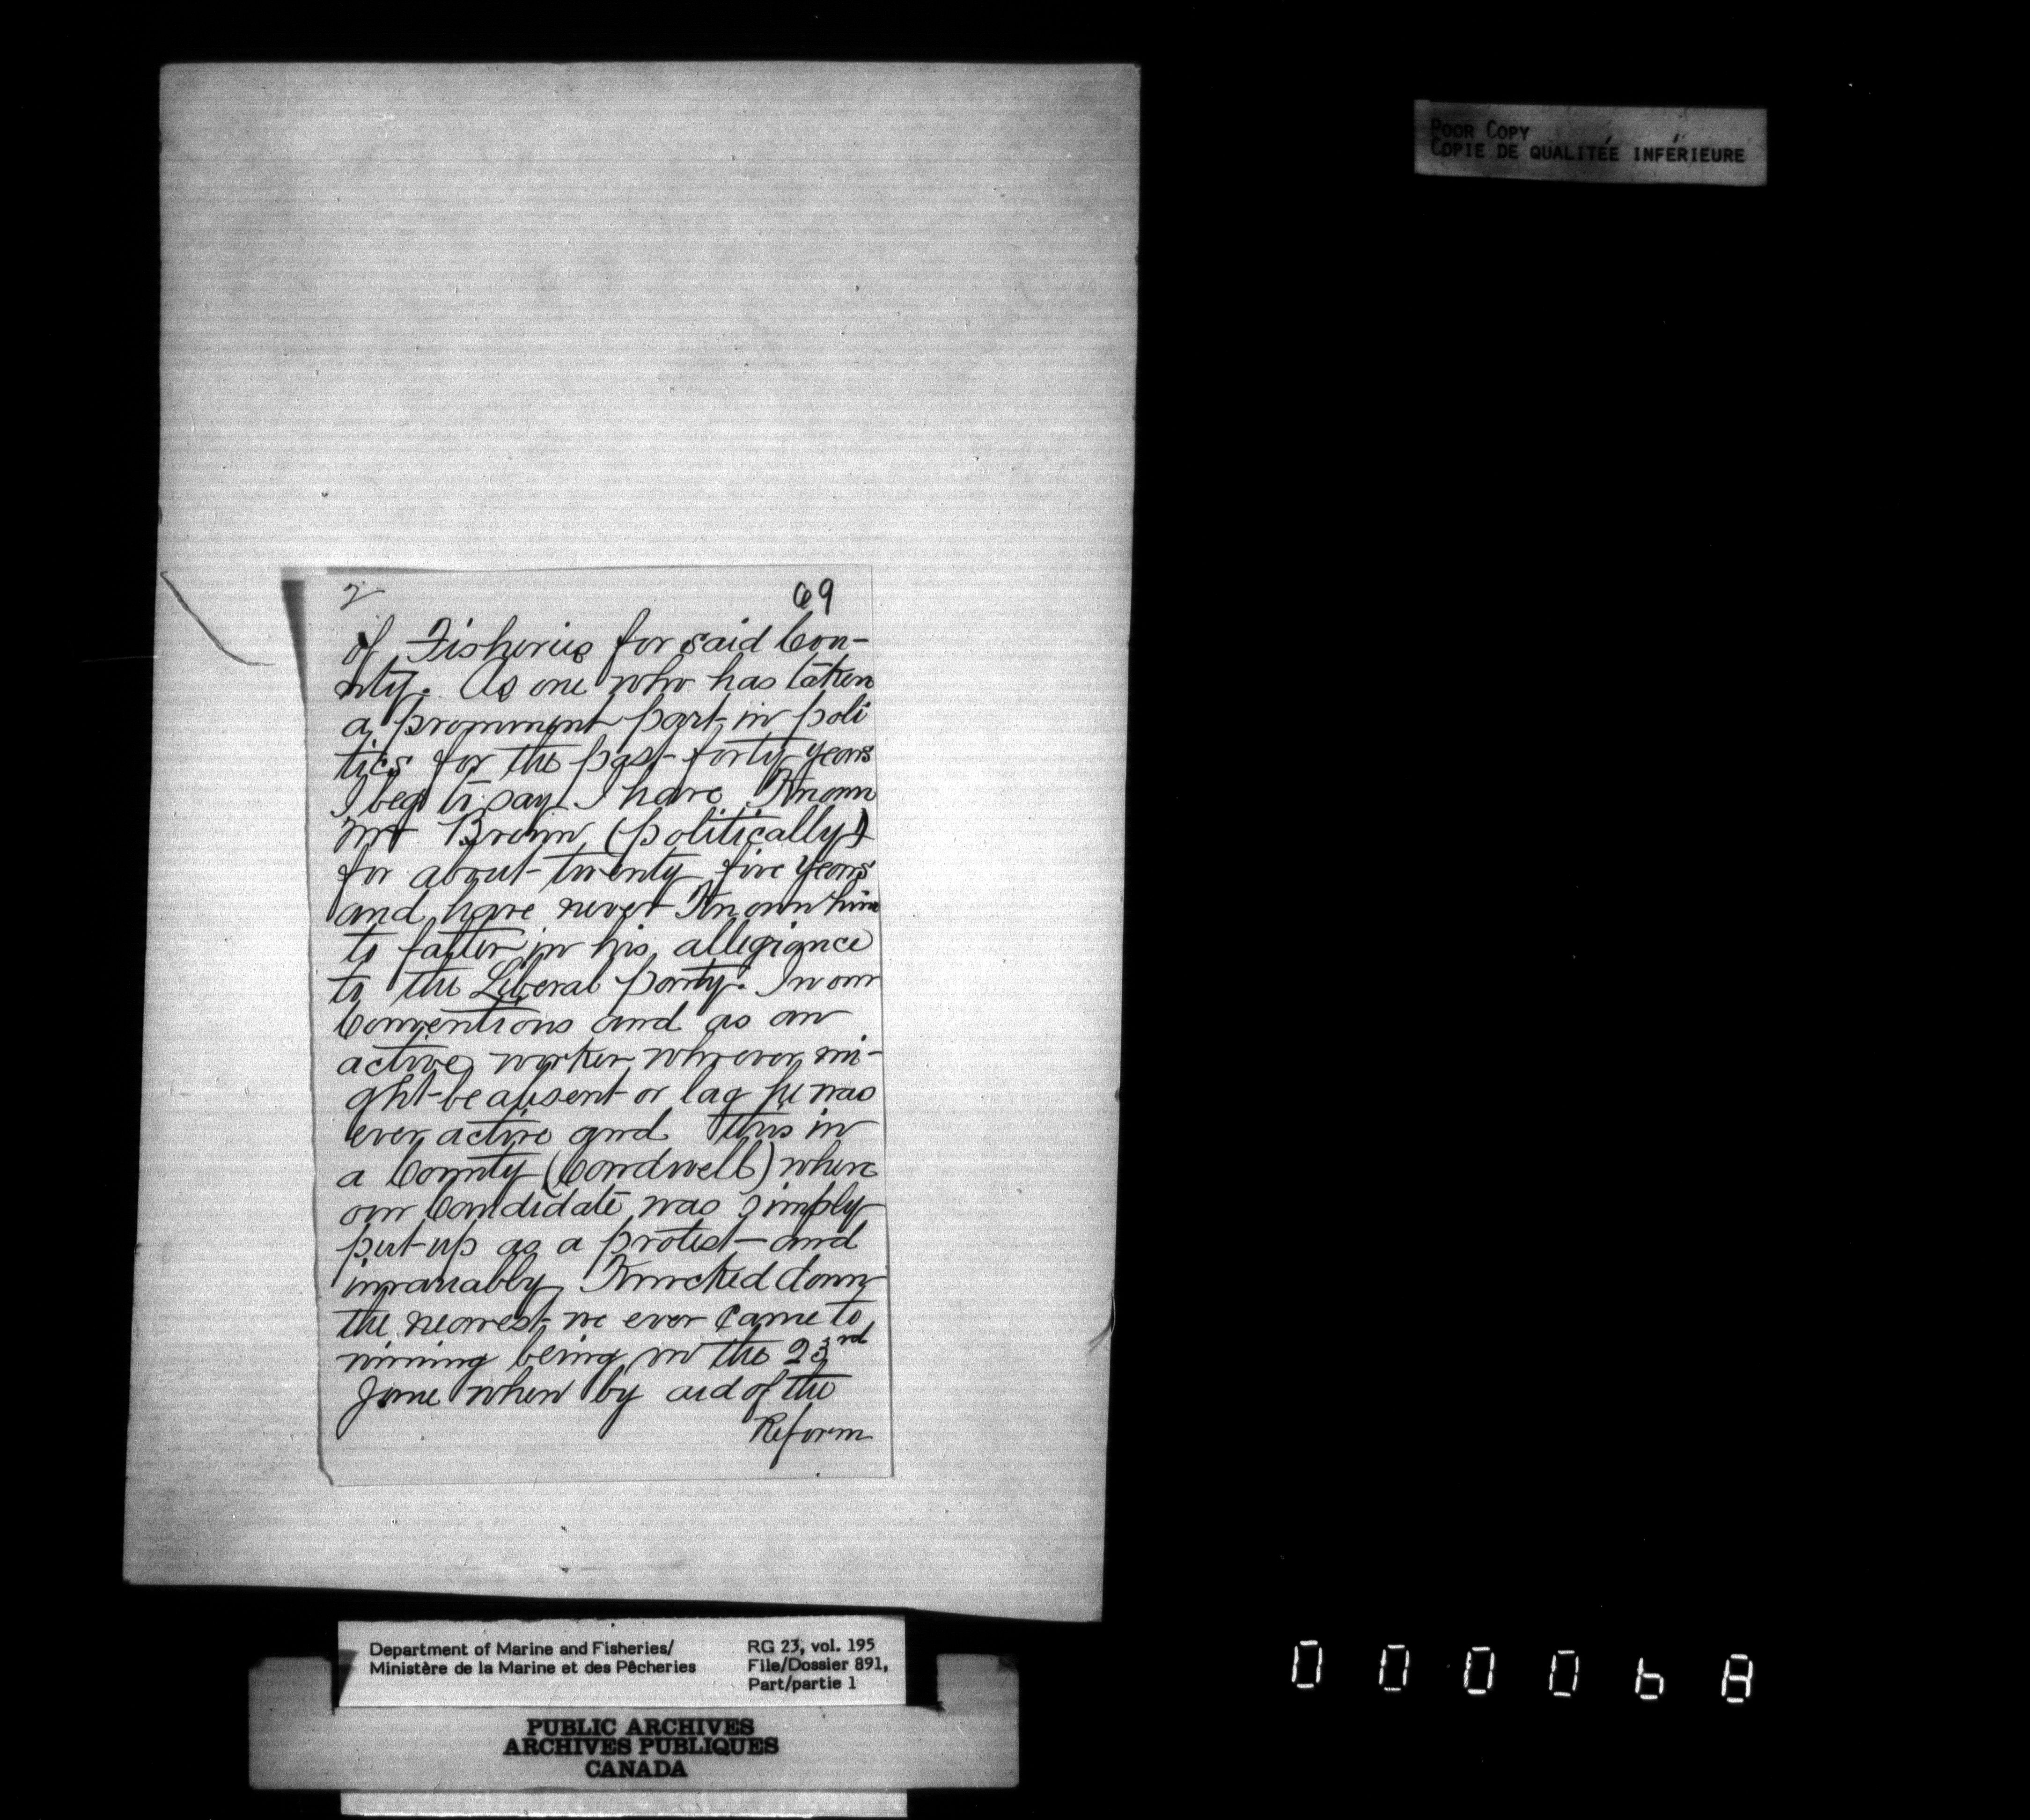 POOR COPY
COPIE DE QUALITÉE INFÉRIEURE
2
69
of Fisheries for said Cou-
nty. As one who has taken
a prominent part in poli
tics for the past forty years
I beg to say I have Known
Mr Brown (politically)
for about twenty five years
and have never Known him
to falter in his allegiance
to the Liberal party. In our
Conventions and as an
active worker whoever mi-
ght be absent or lag he was
ever active and this in
a County (Cardwell) where
our Candidate was simply
put up as a protest and
invariably Knocked down
the nearest we ever came to
winning being on the 23rd
June when by aid of the
Reform
Department of Marine and Fisheries/
Ministère de la Marine et des Pêcheries
RG 23, vol. 195
File/Dossier 891,
Part/partie 1
PUBLIC ARCHIVES
ARCHIVES PUBLIQUES
CANADA
000068